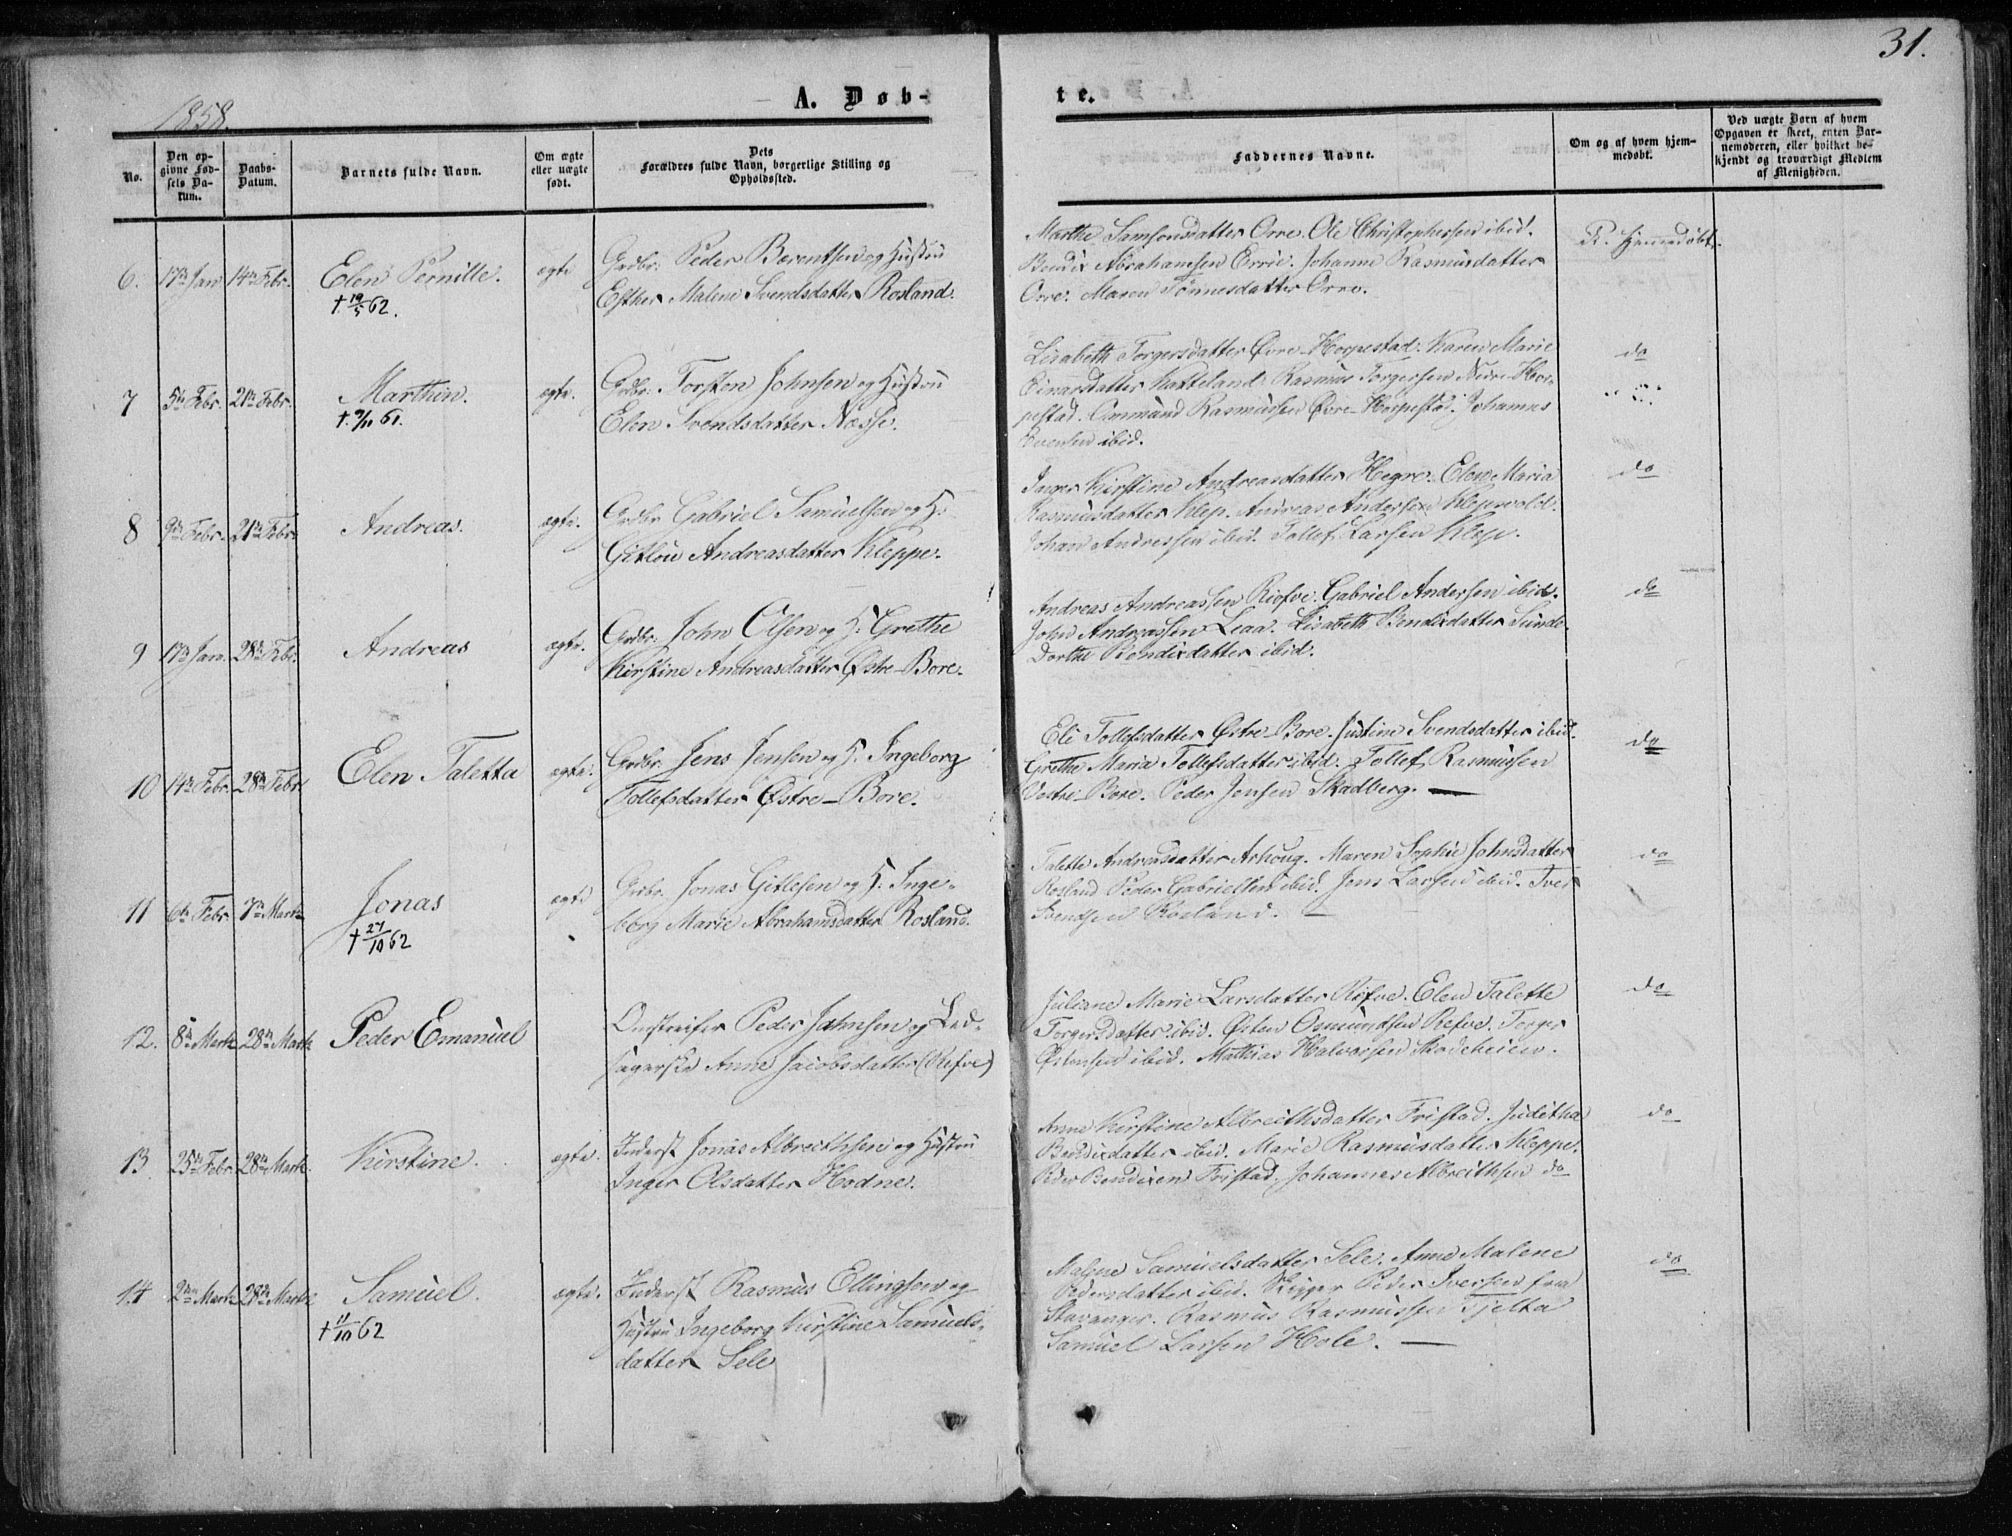 31.
1858.
A. Døb-
te.
No.
Den op-
givne Fød-
sels Da-
tum.
Daabs-
Datum.
Barnets fulde Navn.
Om ægte
eller uægte
født.
Dets
Forældres fulde Navn, borgerlige Stilling og
Opholdssted.
Faddernes Navne.
Om og af hvem hjem-
medøbt.
Ved uægte Børn af hvem
Opgaven er skeet, enten Bar-
nemoderen, eller hvilket be-
kjendt og troværdigt Medlem
af Menigheden.
6. 17de Jan 14de Febr. Elen Pernille. ægte
† 19/5 62.
Grdbr. Peder Berentsen og Hustru
Esther Malene Svendsdatter Rosland.
Marthe Samsonsdatter Orre. Ole Christophersen ibid.
Bendix Abrahamsen Errie. Johanne Rasmusdatter
Orre. Maren Tönnesdatter Orre.
Hjemmedøbt.
7 5te Febr. 21de Febr. Marthin. ægte.
† 9/11 61.
Grdbr. Torsten Johnsen og Hustru
Elen Svendsdatter Næsse.
Lisabeth Torgersdatter Øvre Horpestad. Karen Marie
Einarsdatter Katteland. Rasmus Torgersen Nære Hor-
pestad. Ommund Rasmussen Øvre Horpestad. Johannes
ibid.
do
8 9de Febr. 21de Febr. Andreas. ægte.
Grdbr Gabriel Samuelsen og H.
Gitlou Andreasdatter Kleppe.
Inger Kirstine Andreasdatter Hegre. Elen Maria
Rasmusdatter Klep. Andreas Andersen Klepvold.
Johan Andreassen ibid. Tollef Larsen Klep.
do
9 17de Jan. 28de Febr. Andreas ægte.
Grdbr. John Olsen og H. Grethe
Kirstine Andreasdatter Østre-Bore.
Andreas Andreassen Riefve. Gabriel Andersen ibid.
John Andreassen Leaa. Lisabeth Bendixdatter Sunde.
Dorthe Bendixdatter ibid.
do
10 14de Febr. 28de Febr. Elen Taletta ægte.
Grdbr. Jens Jensen og H. Ingeborg
Tollefsdatter Østre-Bore.
Eli Tollefsdatter Østre-Bore. Justine Svendsdatter ibid.
Grethe Maria Tollefsdatter ibid. Tollef Rasmussen
Vestre-Bore. Peder Jensen Skadberg. —
do
11 6te Febr. 7de Marts Jonas ægte
† 27/10 62
Grdbr. Jonas Gitlesen og H. Inge-
borg Marie Abrahamsdatter Rosland.
Talette Andreasdatter Arhoug. Maren Sophie Johnsdatter
Rosland Peder Gabrielsen ibid. Jens Larsen ibid. Iver
Svendsen Rosland. —
do
12. 8de Marts 28de Marts Peder Emanuel
Omstreifer Peder Johnsen og Led-
sagerske Anne Jacobsdatter (Refve)
Juliane Marie Larsdatter Refve. Elen Talette
Torgersdatter ibid. Østen Osmundsen Refve. Torger
Østensen ibid. Mathias Halvorsen Skodeheien.
do
13 25de Febr 28de Marts. Kirstine. ægte.
Inderst Jonas Albrethsen og Hustru
Inger Olsdatter Hodne.
Anne Kirstine Albrethsdatter Fristad. Juditha
Bendixdatter ibid. Marie Rasmusdatter Kleppe.
Peder Bendixen Fristad, Johannes Albrethsen do
do
14 2den Marts 28de Marts Samuel. ægte.
† 11/10 62
Inderst Rasmus Ellingsen og
Hustru Ingeborg Kirstine Samuels-
datter Sele
Malene Samuelsdatter Sele. Anne Malene
Pedersdatter ibid. Skipper Peder Iversen fra
Stavanger. Rasmus Rasmussen Tjelta
Samuel Larsen Hole. —
do